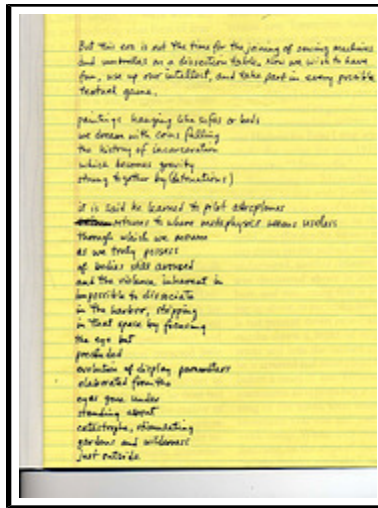 But this era is not the time for the joining of sewing machines
and umbrellas on a dissection table. Now we wish to have
fun, use up our intellect, and take part in every possible
textual game.
paintings hanging like safes or beds
we dream with coins falling
the history of incarceration
which becomes gravity
strung together by (detonations)
it is said he learned to pilot aeroplanes
returns to where metaphysics means useless
through which we
as we truly possess
of bodies still aroused
and the violence inherent in
impossible to dissociate
in the harbor, stripping
in that space by focusing
the eye but
precluded
evolution of display parameters
elaborated from the
eyes gone under
standing about
catastrophe, stimulating
gardens and wilderness
just outside.